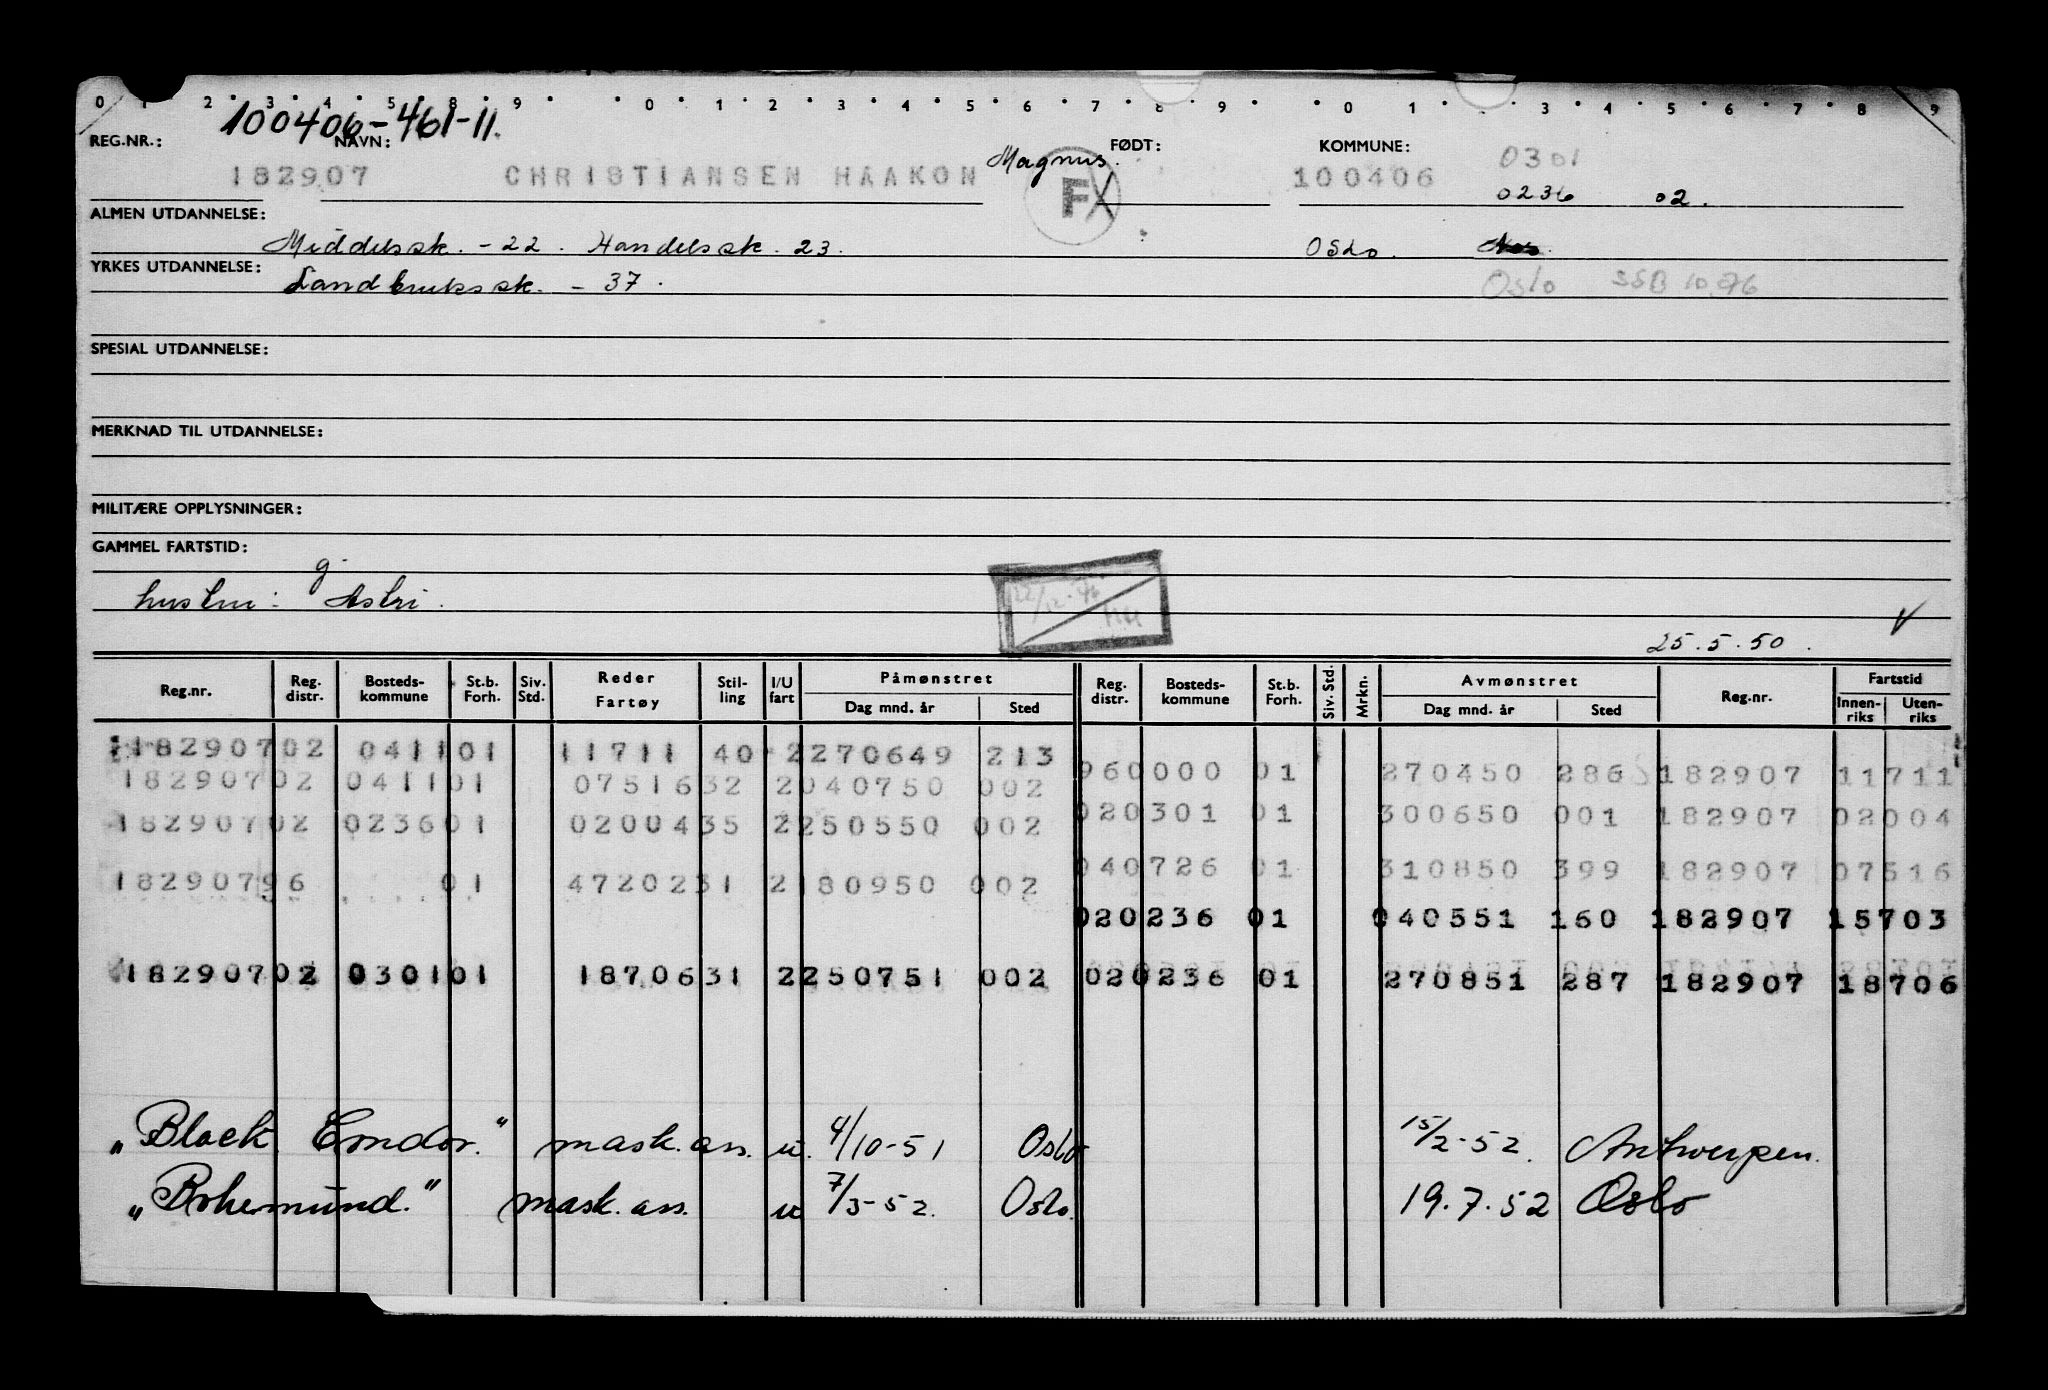 0 1 2 3 4 5 8 9 0 1 2 3 4 5 6 7 8 9 0 1 3 4 5 6 7 8 9
100406-461-11.
REG.NR.: NAVN: FØDT: KOMMUNE: 0301
182907 CHRISTIANSEN HAAKON Magnus. F 100406 0236 02.
ALMEN UTDANNELSE: Middelssk. -22. Handelssk. 23. Oslo.
YRKES UTDANNELSE: Landbrukssk. - 37. Oslo SSB 10.76
SPESIAL UTDANNELSE:
MERKNAD TIL UTDANNELSE:
MILITÆRE OPPLYSNINGER:
GAMMEL FARTSTID:
g.
hustru: Astri.
25.5.50.
Reg.nr. Reg. distr. Bosteds- kommune St.b. Forh. Siv. Std. Reder Fartøy Stil- ling I/U fart Påmønstret Dag mnd. år Sted Reg. distr. Bosteds- kommune St.b. Forh. Siv. Std. Mrkn. Avmønstret Dag mnd. år Sted Reg.nr. Fartstid Innen- riks Uten- riks
18290702 041101 11711 40 2270649 213
960000 01 270450 286 182907 11711
18290702 041101 0751632 2040750 002
020301 01 300650 001 182907 02004
18290702 023601 0200435 2250550 002
040726 01 310850 399 182907 07516
18290796 01 4720231 2180950 002
020236 01 040551 160 182907 15703
18290702 030101 1870631 2250751 002 020236 01 270851 287 182907 18706
„Black Condor.” mask.ass. u. 4/10-51 Oslo 15/2-52. Antwerpen.
„Bohemund.” mask.ass. u 7/3-52. Oslo. 19.7.52 Oslo